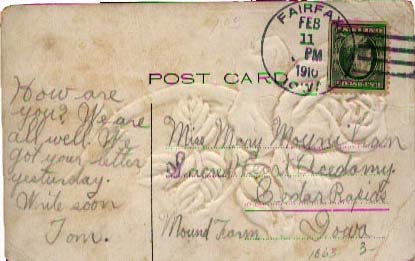 FAIRFAX
FEB
11
PM
1910
IOWA
POST CARD
How are
you? We are
all well. We
got your letter
yesterday.
Write soon
Tom.
Miss Mary
Sacred Heart Academy
Cedar Rapids
Iowa
Mound Farm
1863
3-